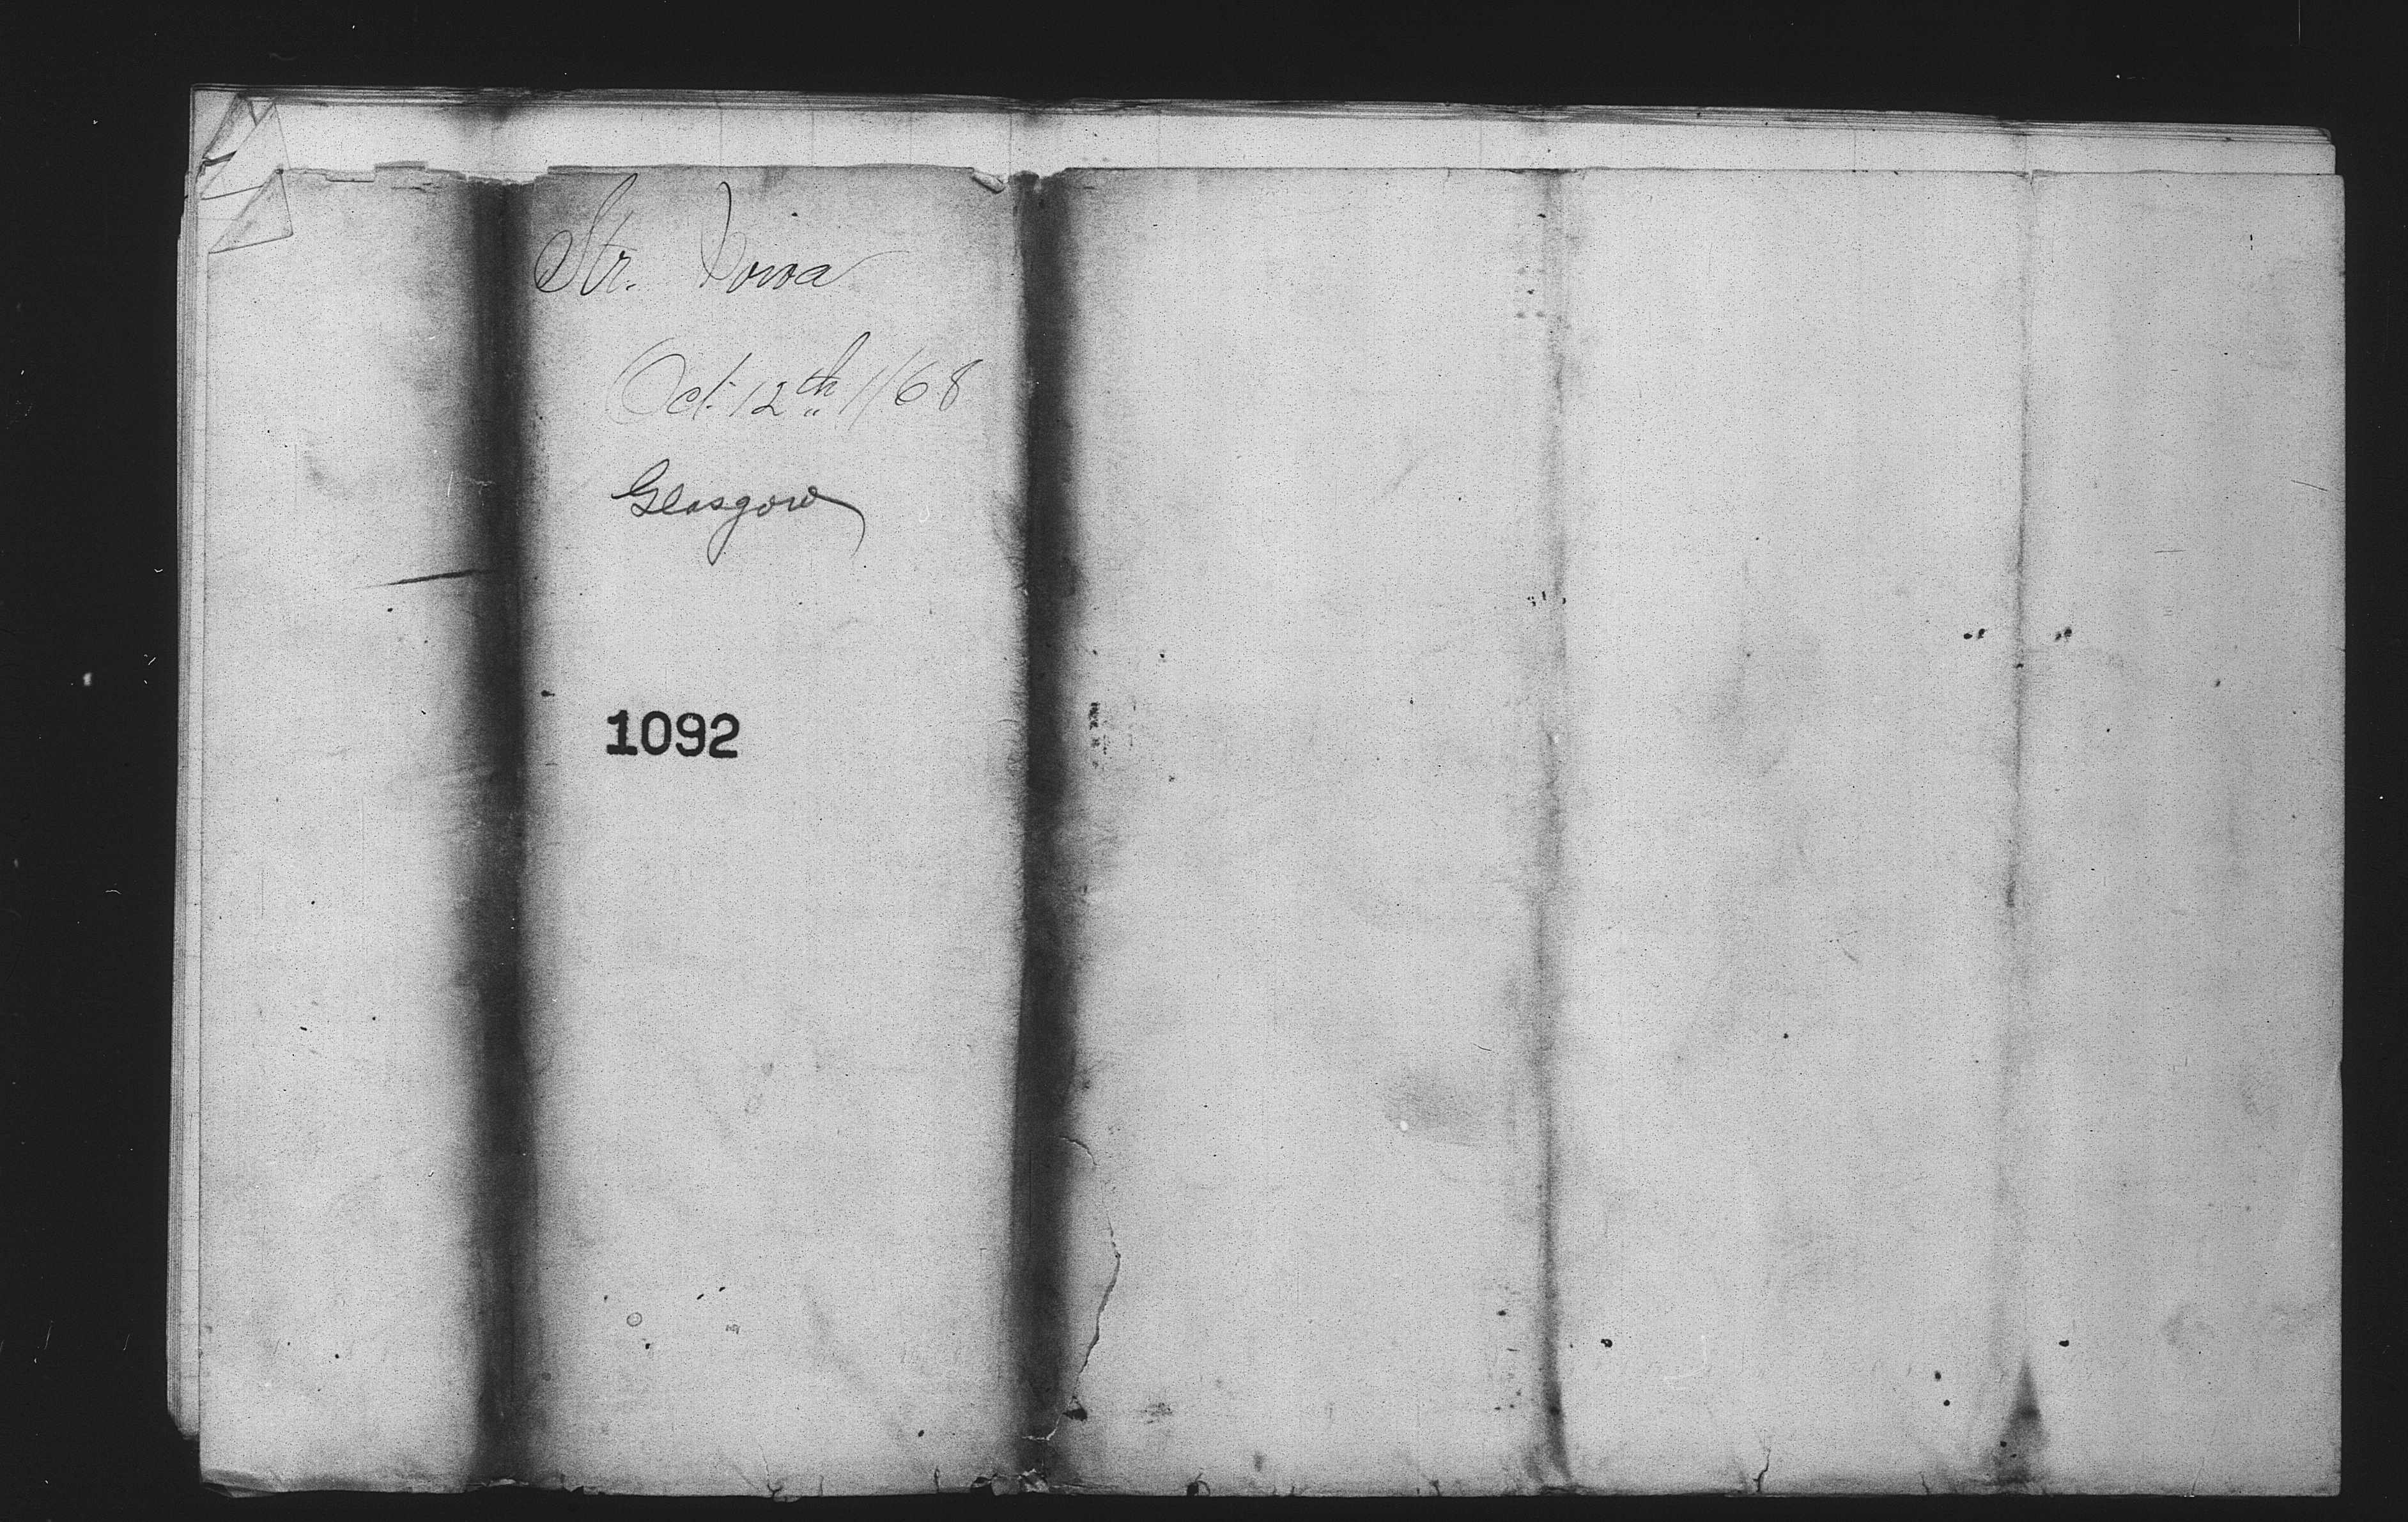 Str. Iowa
Oct. 12th 1/68
Glasgow
1092